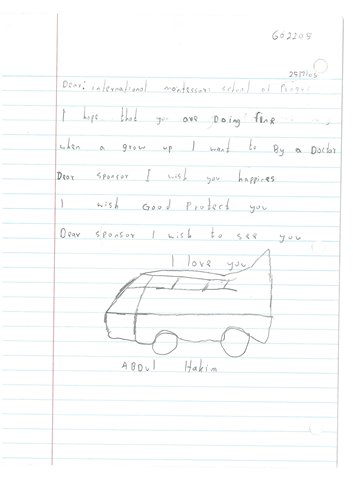 GO2205
25/7/05
Dear; international montessori school of Prague
I hope that you are Doing fine
when a grow up I want to By a Doctor
Dear sponsor I wish you happines
I wish Good Protect you
Dear sponsor I wish to see you
I love you
ABDul Hakim